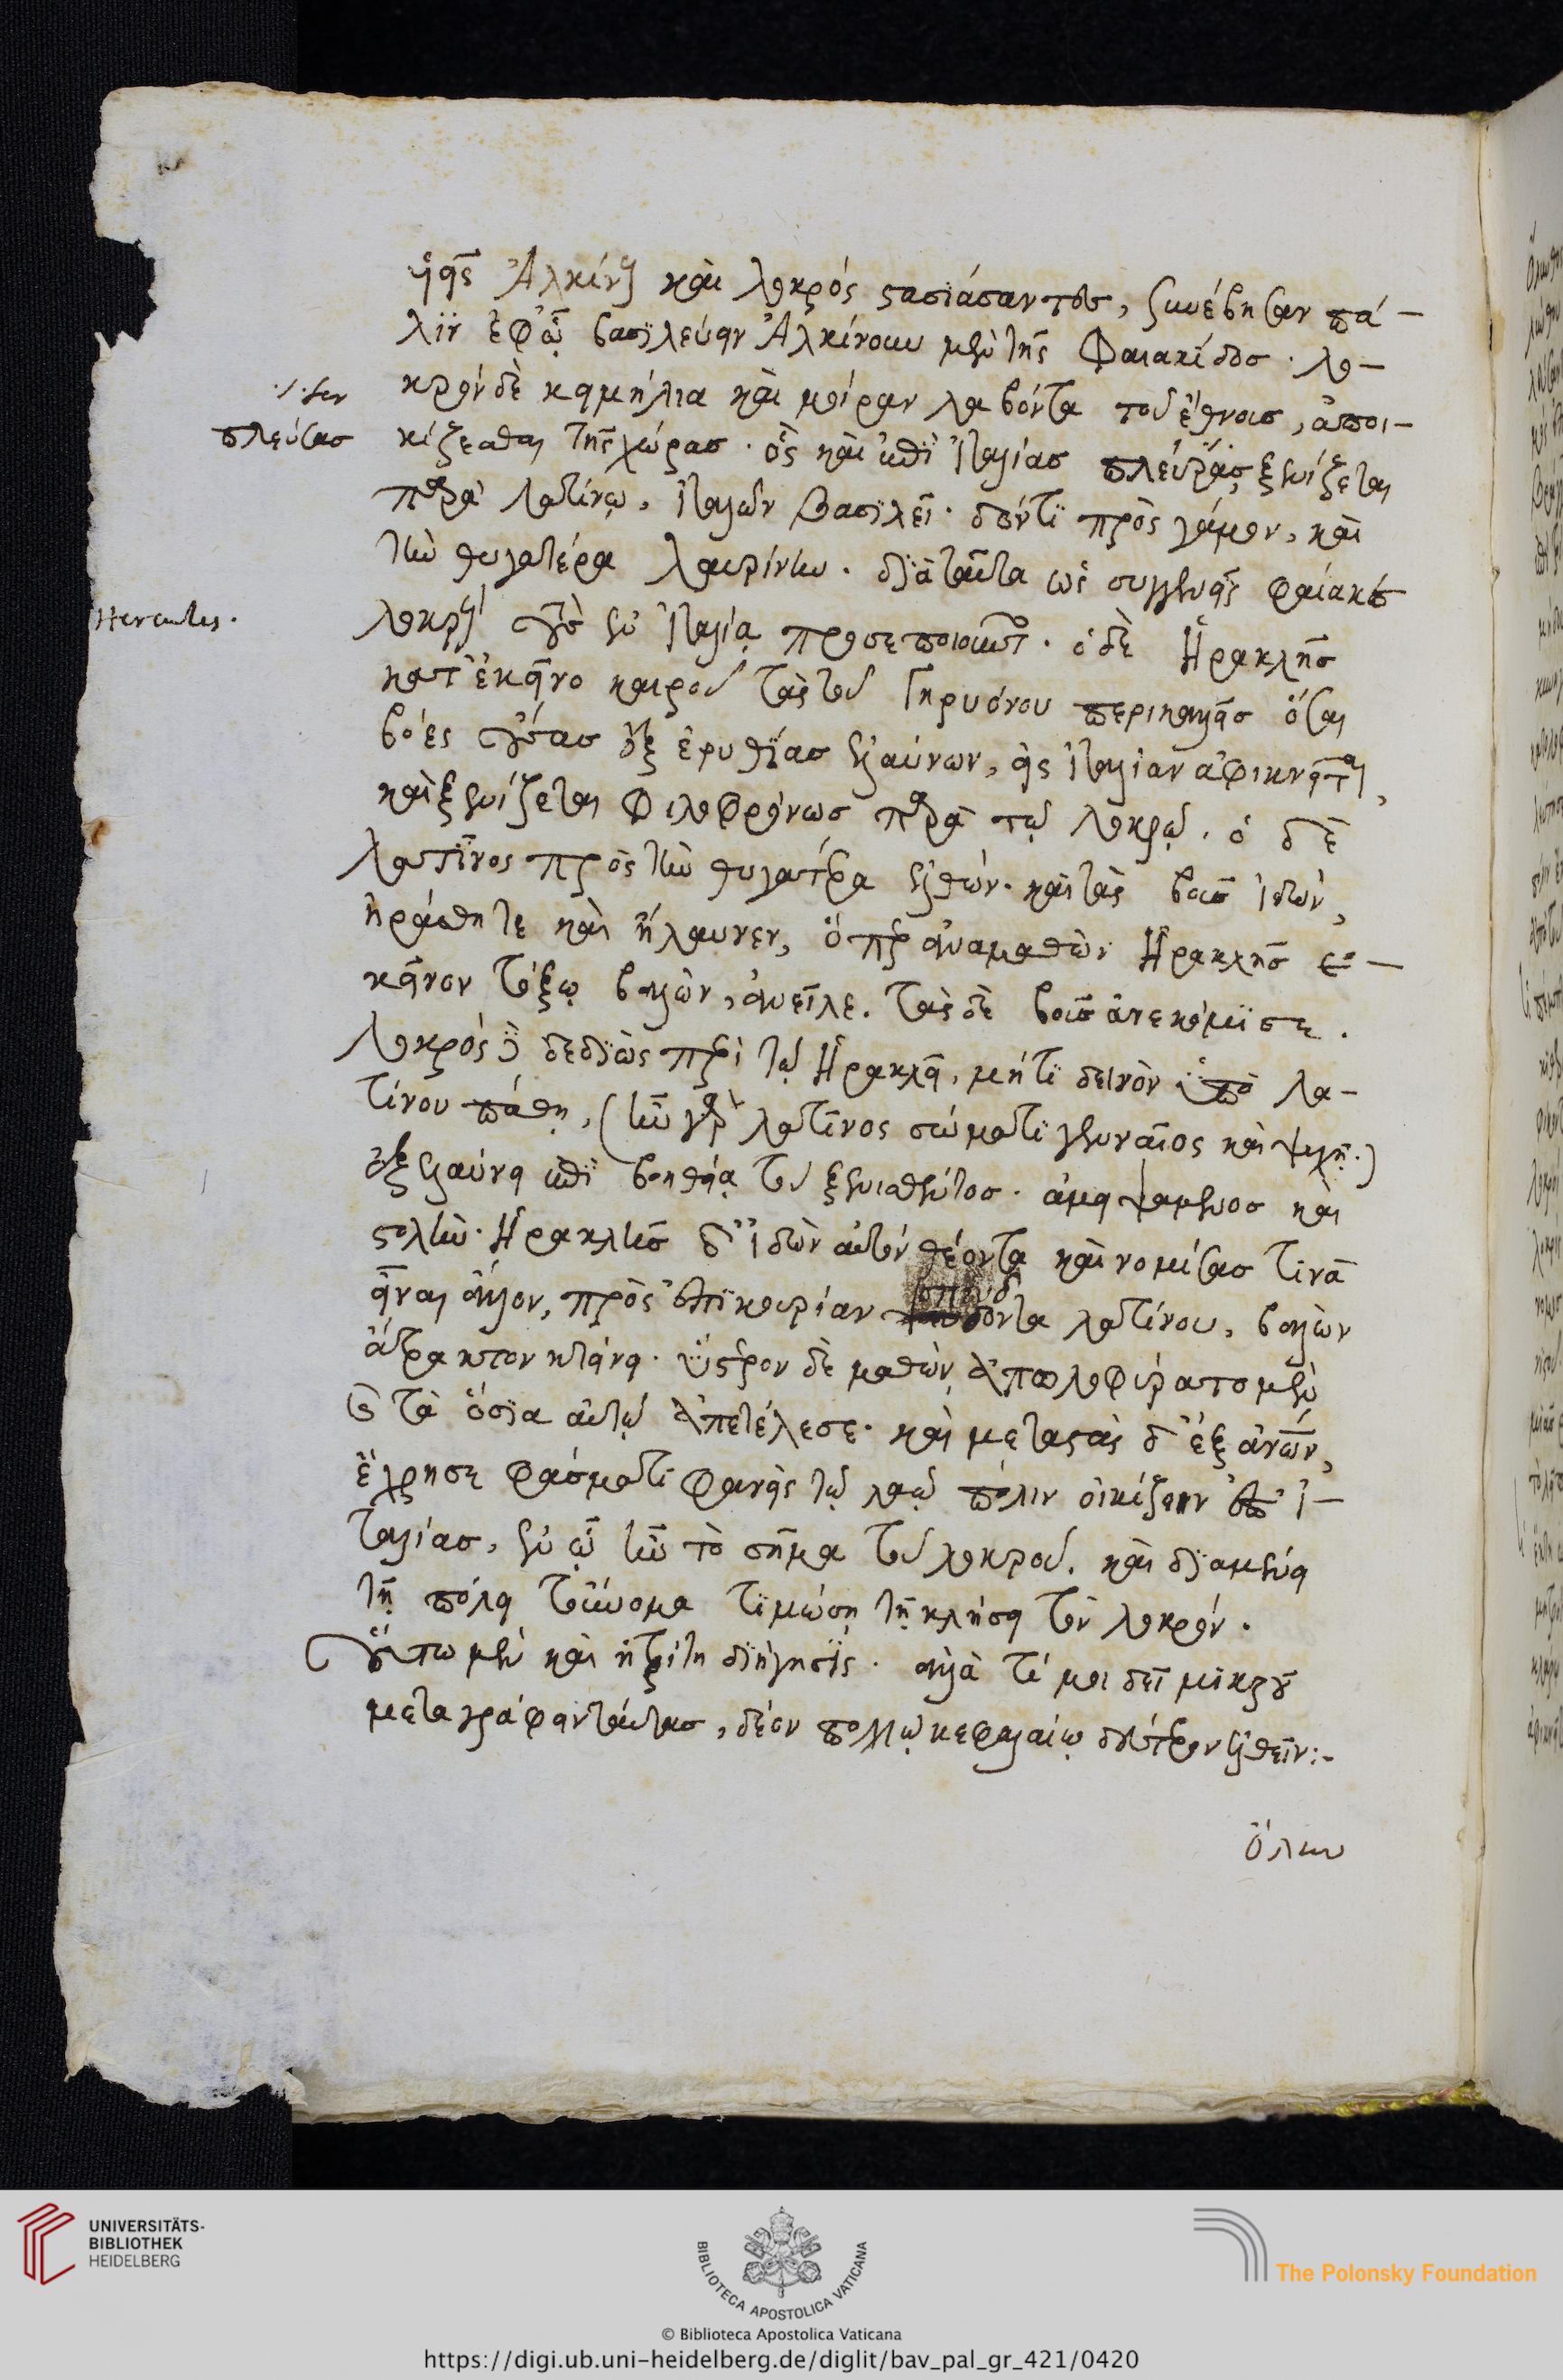 υἱεῖς Ἀλκίνους καὶ Λοκρός στασιάσαντες, συνέβησαν πά-
λιν ἐφ' ᾧ βασιλεύειν Ἀλκίνουν μὲν τῆς Φαιακίδος. Λο-
κρόν δὲ κειμήλια καὶ μοῖραν λαβόντα τοῦ ἔθνους, ἀποι-
πλεύσας
κίζεσθαι τῆς χώρας. ὃς καὶ ἐπὶ Ἰταλίας πλεύρας, ξενίζεται
παρὰ Λατίνῳ, Ἰταλῶν βασιλεῖ. δόντι πρὸς γάμον, καὶ
τὴν θυγατέρα Λαυρίνην. διὰ ταῦτα ὡς συγγενεῖς φαίακες
Hercules.
λοκροὺς τοὺς ἐν Ἰταλίᾳ προσεποιοῦντο. ὁ δὲ Ἡρακλῆς
κατ' ἐκεῖνο καιροῦ τὰς τοῦ Γηρυόνου περικαλλεῖς
βόες τούσας ἐξ ἐρυθίας ἐλαύνων, εἰς Ἰταλίαν ἀφικνεῖται,
καὶ ξενίζεται φιλοφρόνως παρὰ τῷ Λοκρῷ. ὁ δὲ
Λατῖνος πρὸς τὴν θυγατέρα ἐλθών. καὶ τὰς βοῦς ἰδών,
ἠράσθη τε καὶ ἤλαυνεν, ὅπερ ἀναμαθὼν Ἡρακλῆς ἐ-
κεῖνον τόξῳ βαλὼν, ἀνεῖλε. τὰς δὲ βοῦς ἀνεκόμισε.
Λοκρὸς δὲ δεδιὼς περὶ τῷ Ἡρακλεῖ, μή τι δεινὸν ὑπὸ Λα-
τίνου πάθῃ, (ἦν γὰρ Λατῖνος σώματι γενναῖος καὶ ψυχῇ.)
ἐξελαύνει ἐπὶ βοηθείᾳ τοῦ ξενισθέντος. ἀμειψάμενος καὶ
στολήν. Ἡρακλῆς δ' ἰδὼν αὐτόν θέοντα καὶ νομίσας τινὰ
εἶναι ἄλλον, πρὸς ἐπικουρίαν σπεύδοντα Λατίνου, βαλὼν
ἄτρακτον κτείνει. ὕστερον δὲ μαθὼν, ἀπωλοφύρατο μὲν
καὶ τὰ ὅσια αὐτῷ ἀπετέλεσε. καὶ μεταστὰς δ' ἐξ ἀνῶν,
ἔχρησε φάσματι φανεὶς τῷ λαῷ πόλιν οἰκίζειν ἐπ' Ἰ-
ταλίας, ἐν ᾧ ἦν τὸ σῆμα τοῦ Λοκροῦ. καὶ διαμένει
τῇ πόλει τοὔνομα τιμώσῃ τῇ κλήσει τὸν Λοκρόν.
οὕτω μὲν καὶ ἡ τρίτη διήγησις. ἀλλὰ τί μοι δεῖ μικροῦ
μεταγράφειν ταύτας, δέον πολλῷ κεφαλαιωδέστερον ἐλθεῖν:-
ὅλων
UNIVERSITÄTS-
BIBLIOTHEK
HEIDELBERG
BIBLIOTECA APOSTOLICA VATICANA
The Polonsky Foundation
© Biblioteca Apostolica Vaticana
https://digi.ub.uni-heidelberg.de/diglit/bav_pal_gr_421/0420